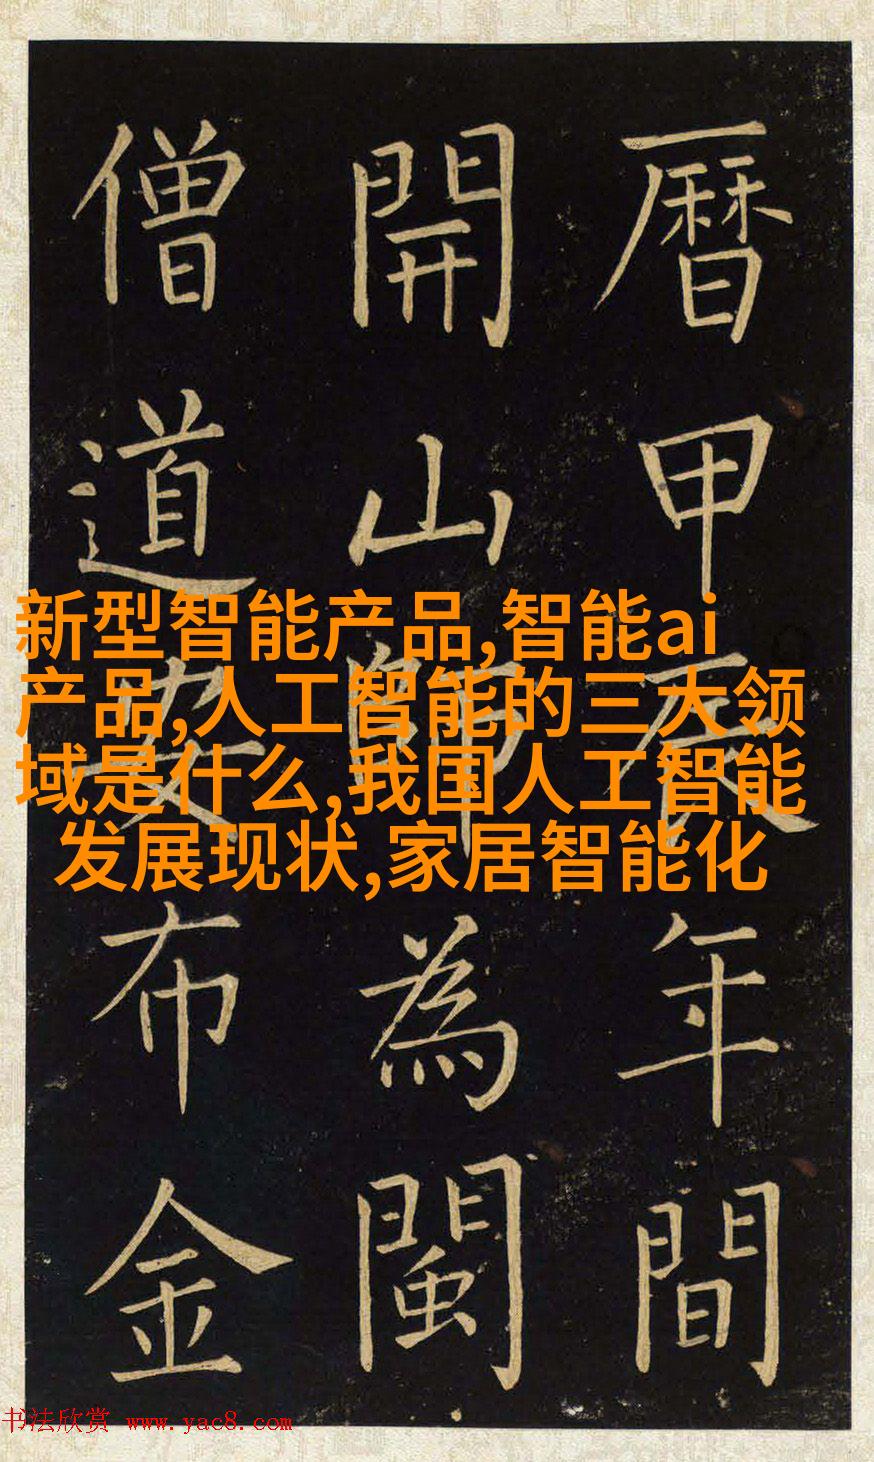 曆甲辰年間
開山師為閩
僧道安布金
新型智能产品,智能ai
产品,人工智能的三大领
域是什么,我国人工智能
发展现状,家居智能化
书法欣赏 www.yac8.com